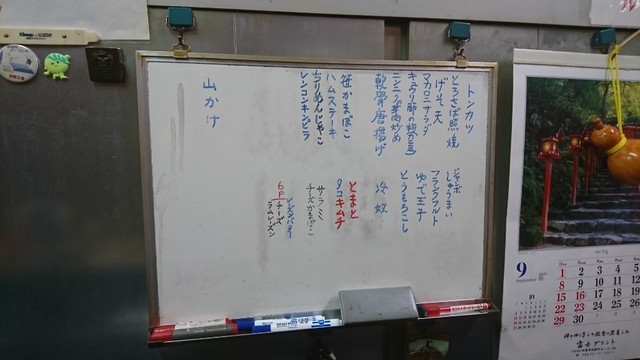 トンカツ
とろさば照焼
げそ天
マカロニサラダ
ニンニク芽肉炒め
軟骨唐揚げ
笹かまぼこ
ハムステーキ
レンコンキンピラ
山かけ
ジャンボしゅうまい
フランクフルト
ゆで玉子
とうもろこし
冷奴
とまと
タコキムチ
サラミ
チーズかまぼこ
6Pチーズ
ラムレーズン
9
1 2 3 4 5
8 9 10 11 12
15 16 17 18 19
22 23 24 25 26
29 30
10
富士プリント